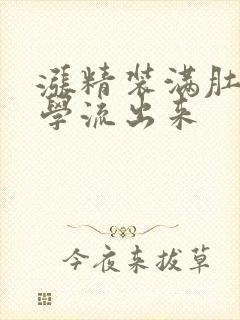 漲精装满肚
學流出来
今夜来拔草